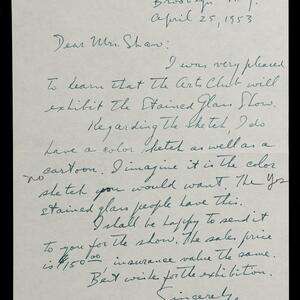 Brooklyn N.Y.
April 25, 1953
Dear Mrs. Shaw:
I was very pleased
to learn that the Arts Club will
exhibit the Stained Glass Show.
Regarding the sketch, I do
have a color sketch as well as a
cartoon. I imagine it is the color
no
sketch you would want. The Yes
stained glass people have this.
I shall be happy to send it
to you for the show. The sales price
is $150.00 insurance value the same.
Best wishes for the exhibition.
Sincerely,